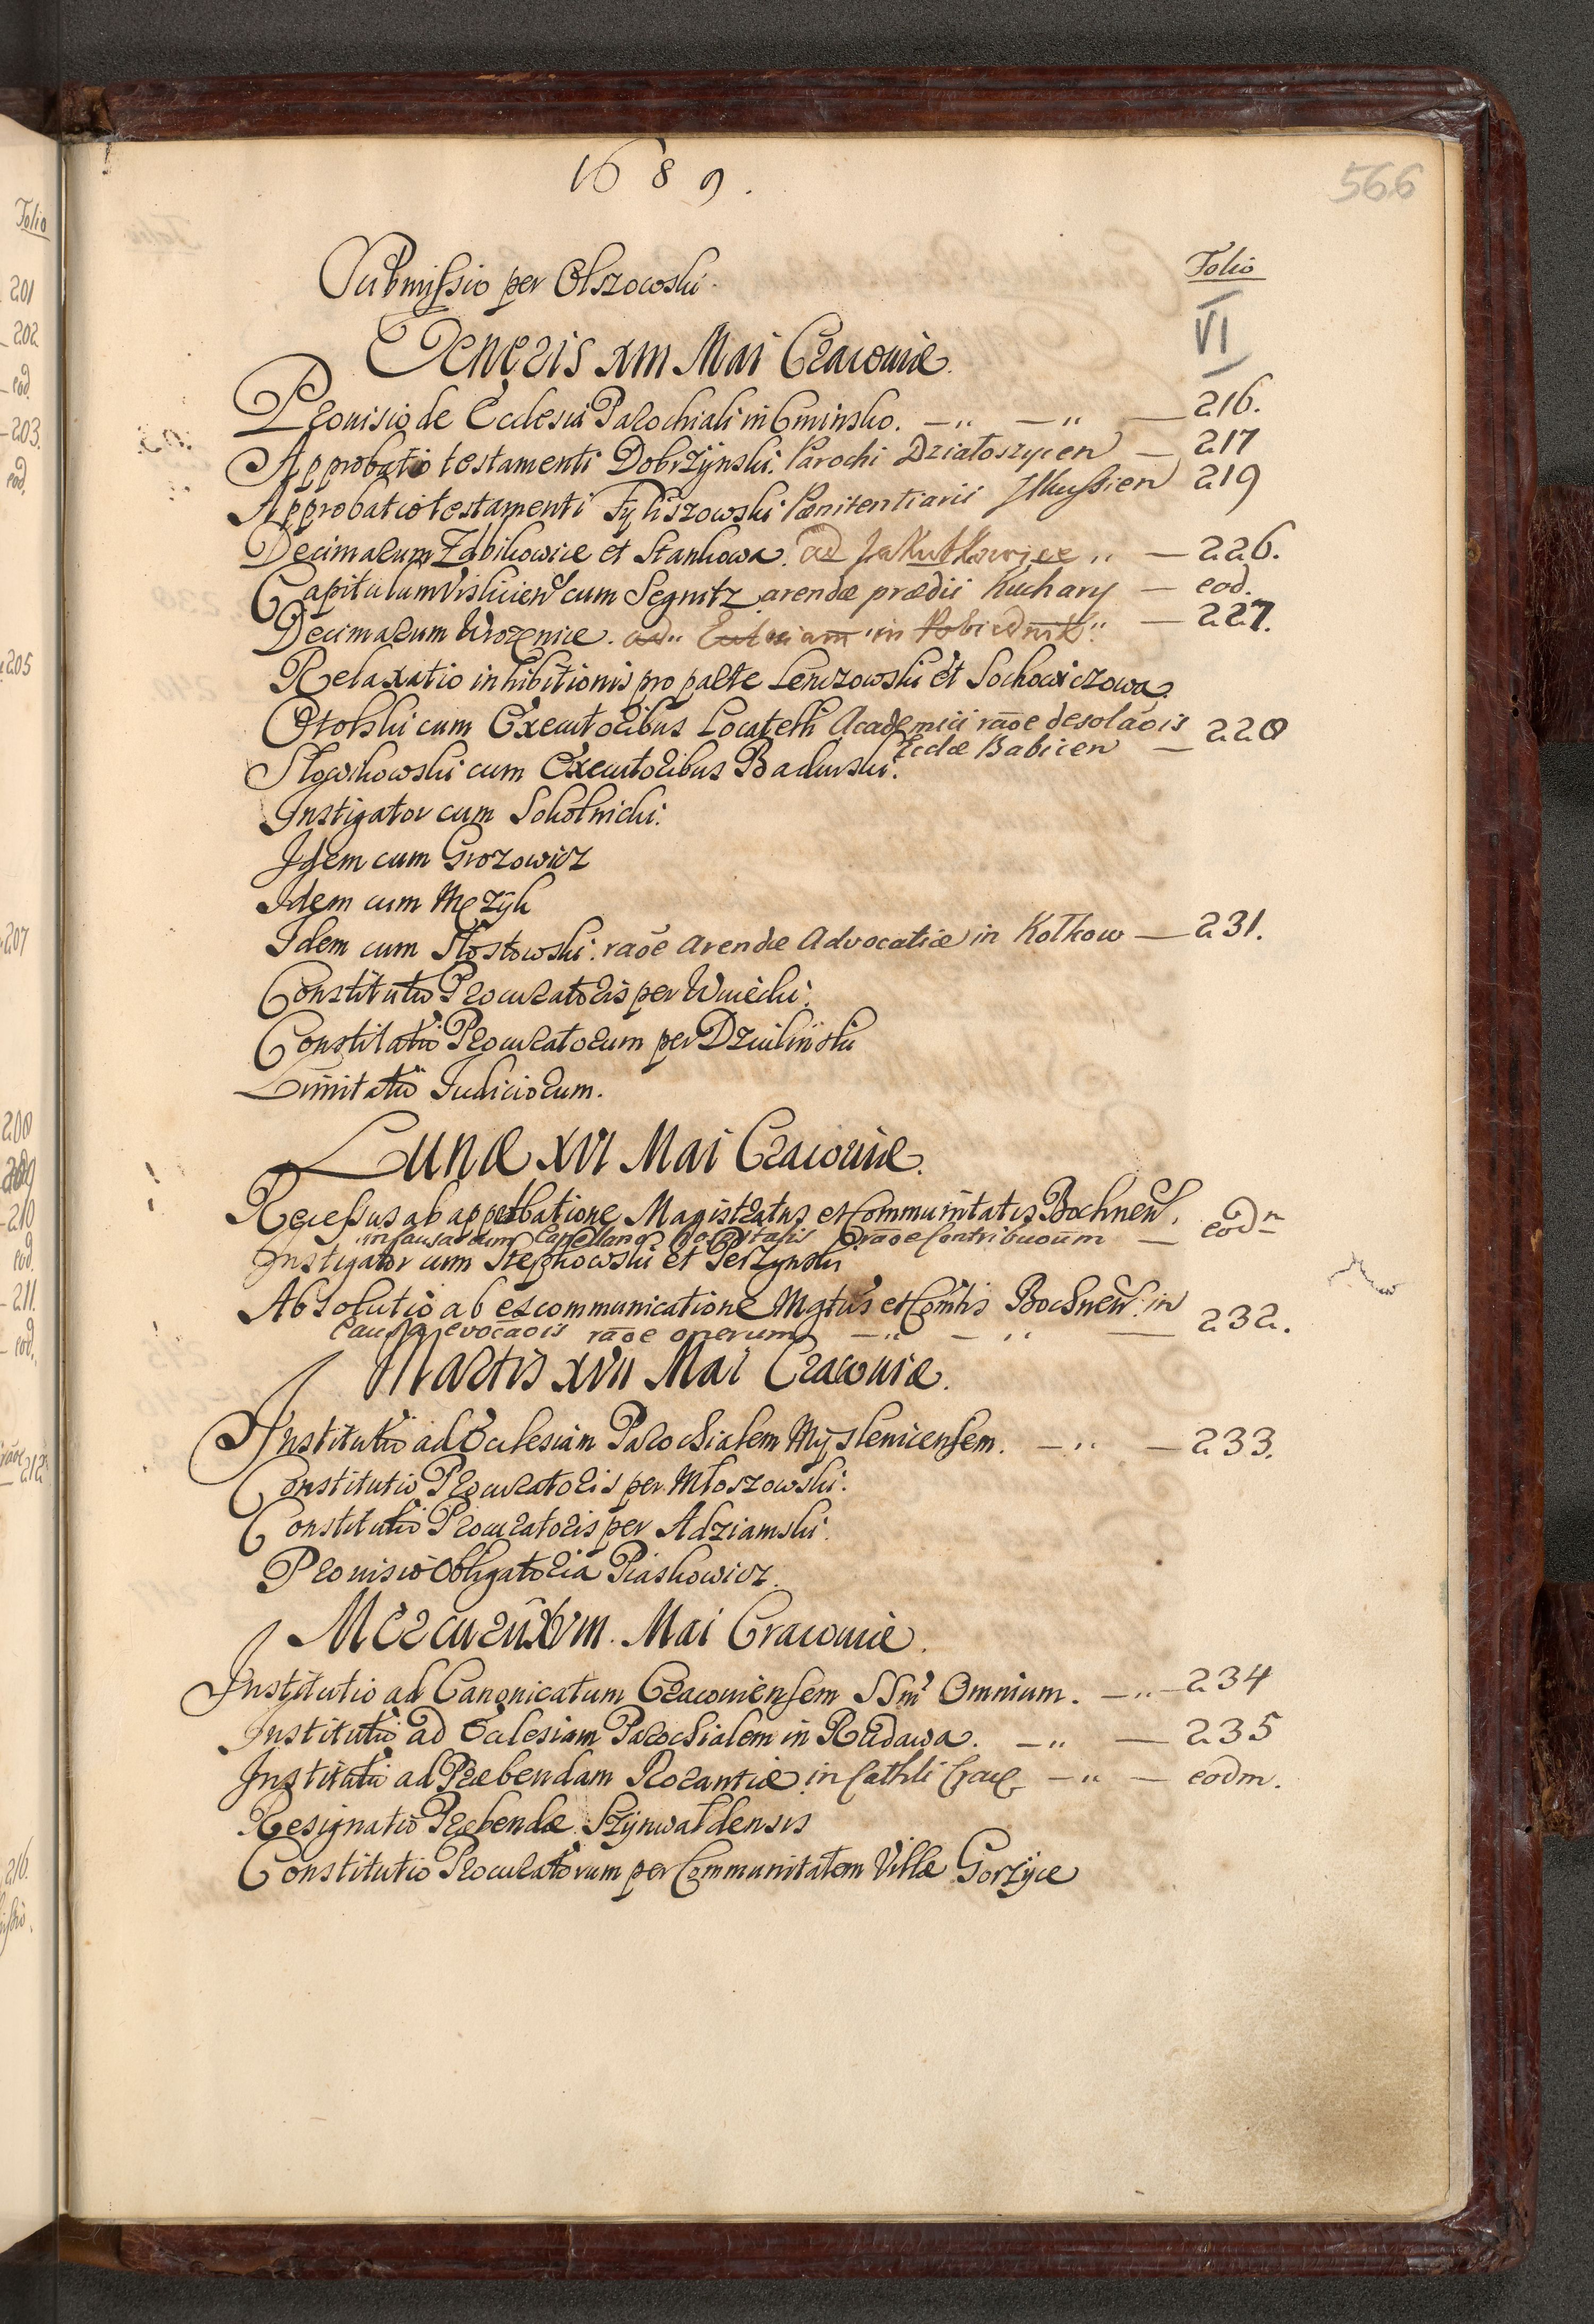 1689.
566
Submissio per Olszowski.
Folio
VI
Veneris XIII Mai Cracoviæ.
Provisio de Ecclesia Parochiali in Gminsko. — " — " — 216.
Approbatio testamenti Dobrzÿnski. Parochi Działoszycen — 217
Approbatio testamenti Fyliszowski Pænitentiarii Ilkussien 219
Decimarum Zabikowice et Stankowa. ad Jakubkowice " — 226.
Capitulum Vislicien cum Segnitz arendæ prædii Kuchary — eod.
Decimarum Wrozenice. in — 227.
Relaxatio inhibitionis pro parte Lenczowski et Sochowiczowa.
Otolski cum Executoribus Locatelli Academici raōe desolaōis
Ecclæ Babicen — 228
Slowikowski cum Executoribus Badurski.
Instigator cum Sokolnicki.
Idem cum Grozowicz
Idem cum Męzÿk
Idem cum Stostowski. raōe arendæ Advocatiæ in Kotkow — 231.
Constitutio Procuratoris per Wnicki.
Constitutio Procuratorum per Dzwilinski
Limitatio Judiciorum.
Lunæ XVI Mai Cracoviæ.
Recessus ab appellatione Magistratus et Communitatis Bochnen.
in causa cum Capellano Hospitalis raōe Contribuoūm — eodm
Instigator cum Stepkowski et Perzynski
Absolutio ab excommunicatione Mgtus et Comtis Bochnen. in
causa evocaōis raōe onerum — " — " — 232.
Martis XVII Mai Cracoviæ.
Institutio ad Ecclesiam Parochialem Mÿslenicensem. — " — 233.
Constitutio Procuratoris per Młoszowski.
Constitutio Procuratoris per Adziamski.
Provisio Obligatoria Piaskowicz.
Mercurii XVIII. Mai Cracoviæ.
Institutio ad Canonicatum Cracoviensem SSm Omnium. — " — 234
Institutio ad Ecclesiam Parochialem in Rudawa. — " — 235
Institutio ad Præbendam Rorantiæ in Cathli Crac — " — eodm.
Resignatio Præbendæ Szÿnwaldensis
Constitutio Procuratorum per Communitatem Villæ Gorzÿce